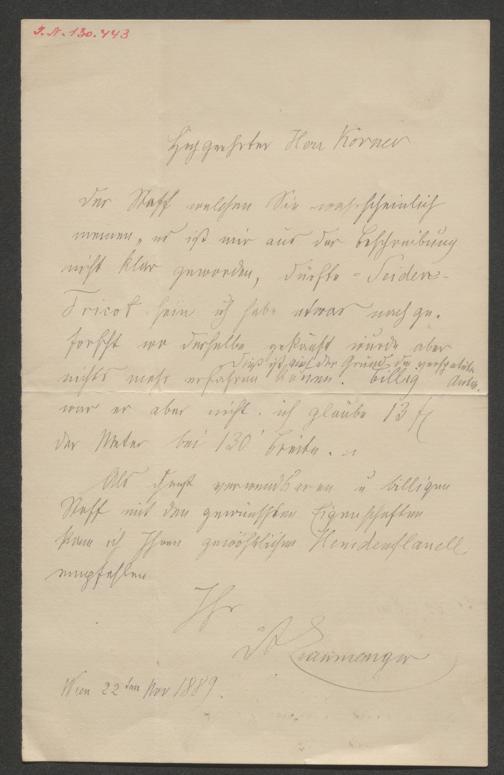 I.N. 130.443
Hochgeehrter Herr Körner
Der Stoff welchen Sie wahrscheinlich
meinen, es ist mir aus der Beschreibung
nicht klar geworden, dürfte - Seiden-
Tricot sein ich habe etwas nachge-
forscht wo derselbe gekauft wurde aber
dieß ist auch der Grund der verspäteten
nichts mehr erfahren können. billig Antw.
war er aber nicht. ich glaube 13 fl
der Meter bei 130 breite.
Als verwendbaren u billigen
Stoff mit den gewünschten Eigenschaften
kann ich Ihnen gewöhnlichen Hemdenflanell
empfehlen
Ihr
Wien 22ten Nov 1889.